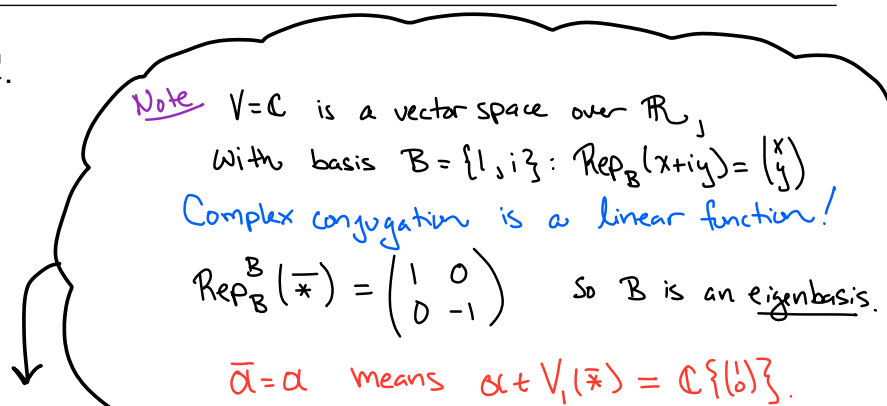 Note V=ℂ is a vector space over ℝ,
with basis B={1,i}: Rep_B(x+iy)=(x y)
Complex conjugation is a linear function!
Rep_B^B(*̅) = (1 0 0 -1) So B is an eigenbasis.
α̅=α means α∈V₁(*̅) = ℂ{(1 0)}.